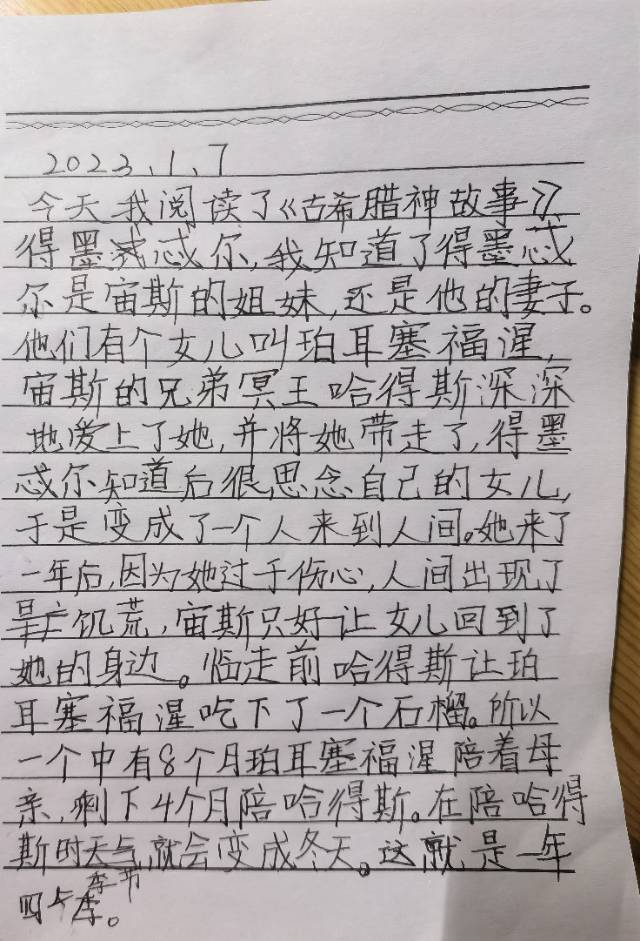 2023.1.7
今天我阅读了《古希腊神故事》
得墨忒惑尔,我知道了得墨惑
尔是宙斯的姐妹,还是他的妻子。
他们有个女儿叫珀耳塞福湼,
宙斯的兄弟冥王哈得斯深深
地爱上了她,并将她带走了,得墨
惑尔知道后很思念自己的女儿,
于是变成了一个人来到人间。她来了
一年后,因为她过于伤心,人间出现了
饥荒,宙斯只好让女儿回到了
她的身边。临走前哈得斯让珀
耳塞福湼吃下了一个石榴。所以
一个中有8个月珀耳塞福湼陪着母
亲,剩下4个月陪哈得斯。在陪哈得
斯时天气就会变成冬天。这就是一年
季节
四季。